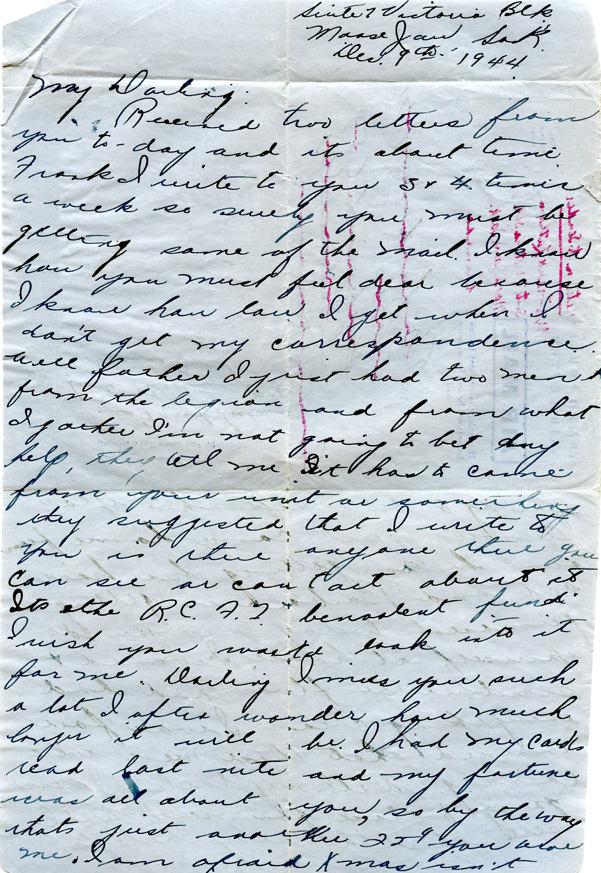 Suite 7 Victoria Blk
Moose Jaw Sask.
Dec. 9th 1944
My Darling:
Received two letters from
you to-day and its about time.
Frank I write to you 3 & 4 times
a week so surely you must be
getting some of the mail. I know
how you must feel dear because
I know how low I get when I
don't get my correspondence.
Well father I just had two men
from the legion and from what
I gather I'm not going to get any
help, they tell me it has to come
from your unit or something
they suggested that I write to
you is there anyone there you
can see or contact about it
Its the R.C.A.F. benevolent fund
I wish you would look into it
for me. Darling I miss you such
a lot I often wonder how much
longer it will be. I had my cards
read last nite and my fortune
was all about you, so by the way
thats just another 25¢ you owe
me. I am afraid Xmas isn't